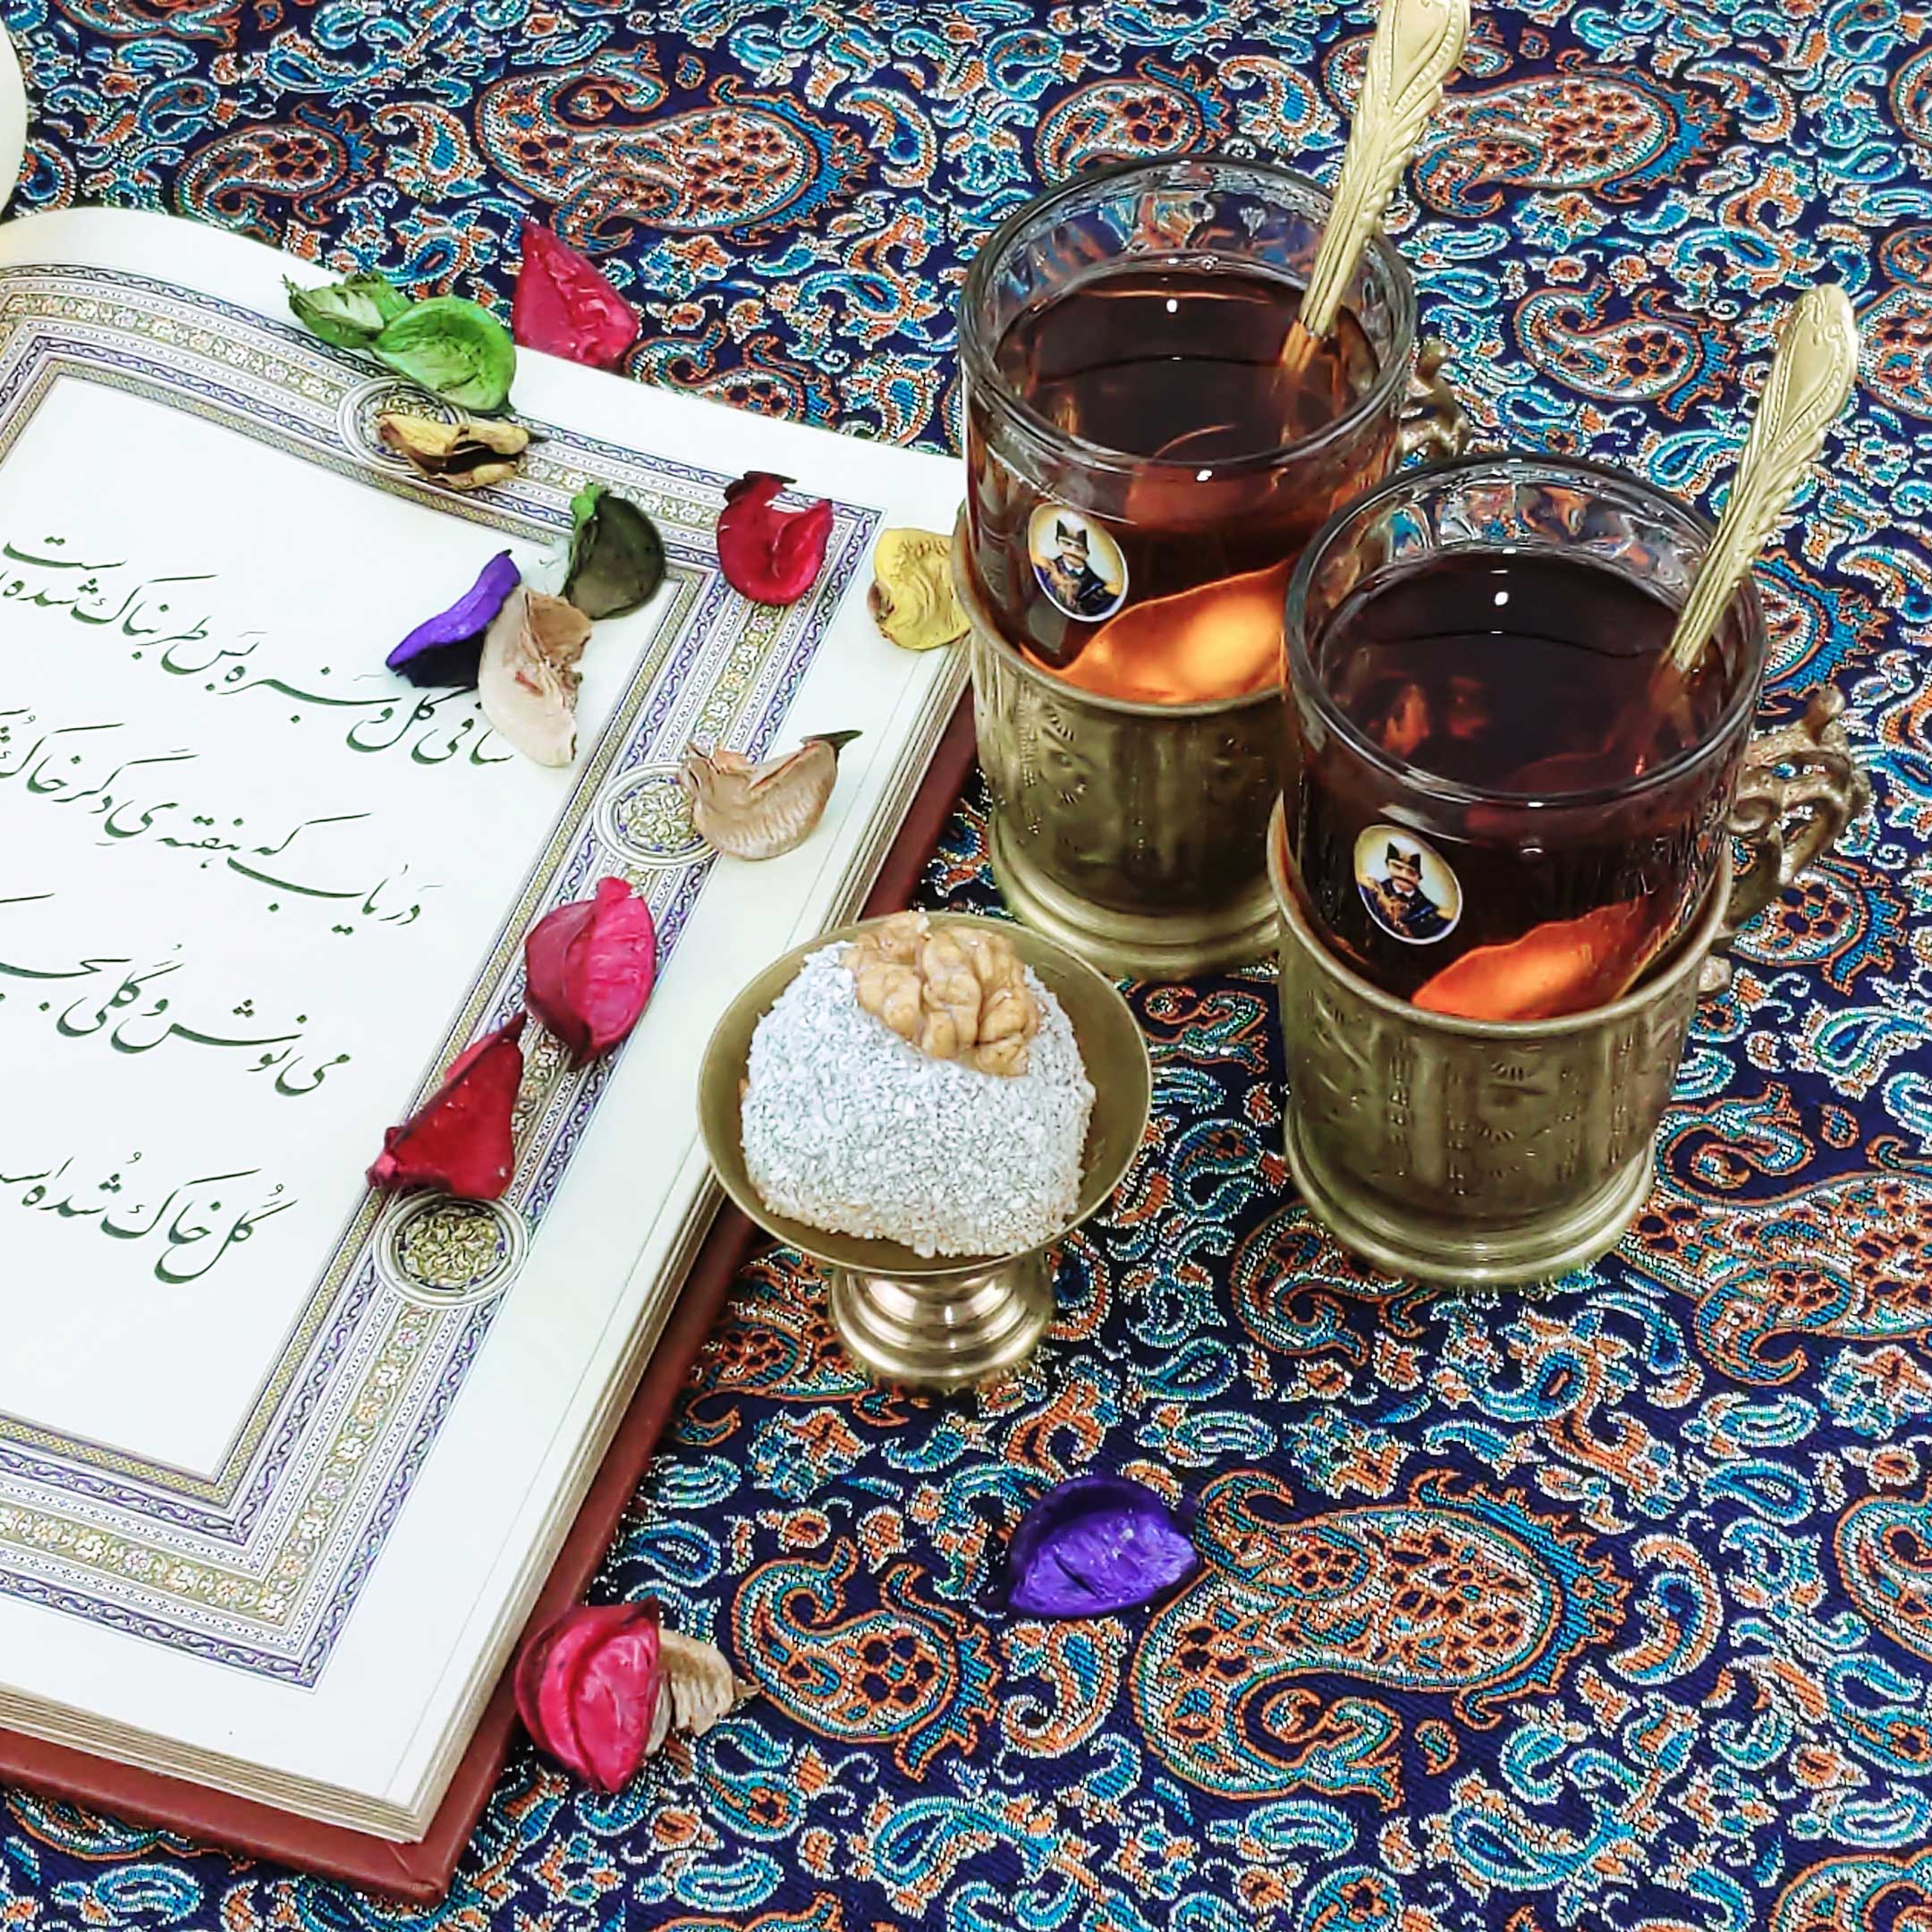 ساقی گل و سبزه بس طربناک شده است
دریاب که هفته ی دگر خاک
می نوش و گلی
گل خاک شده اس